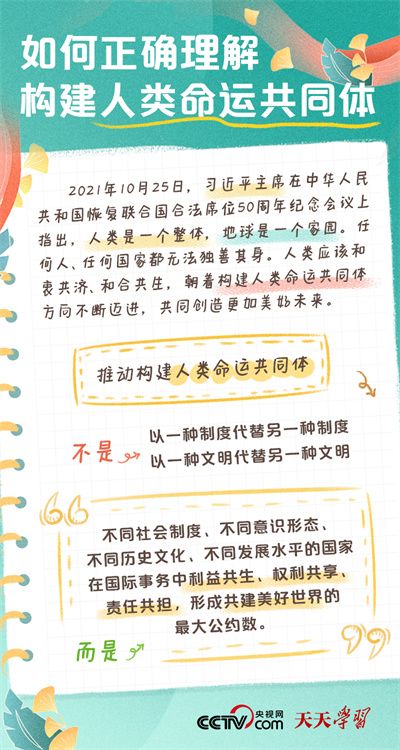 如何正确理解
构建人类命运共同体
2021年10月25日，习近平主席在中华人民
共和国恢复联合国合法席位50周年纪念会议上
指出，人类是一个整体，地球是一个家园。任
何人、任何国家都无法独善其身。人类应该和
衷共济、和合共生，朝着构建人类命运共同体
方向不断迈进，共同创造更加美好未来。
推动构建人类命运共同体
不是
以一种制度代替另一种制度
以一种文明代替另一种文明
不同社会制度、不同意识形态、
不同历史文化、不同发展水平的国家
在国际事务中利益共生、权利共享、
责任共担，形成共建美好世界的
最大公约数。
而是
CCTV央视网
com
天天学習